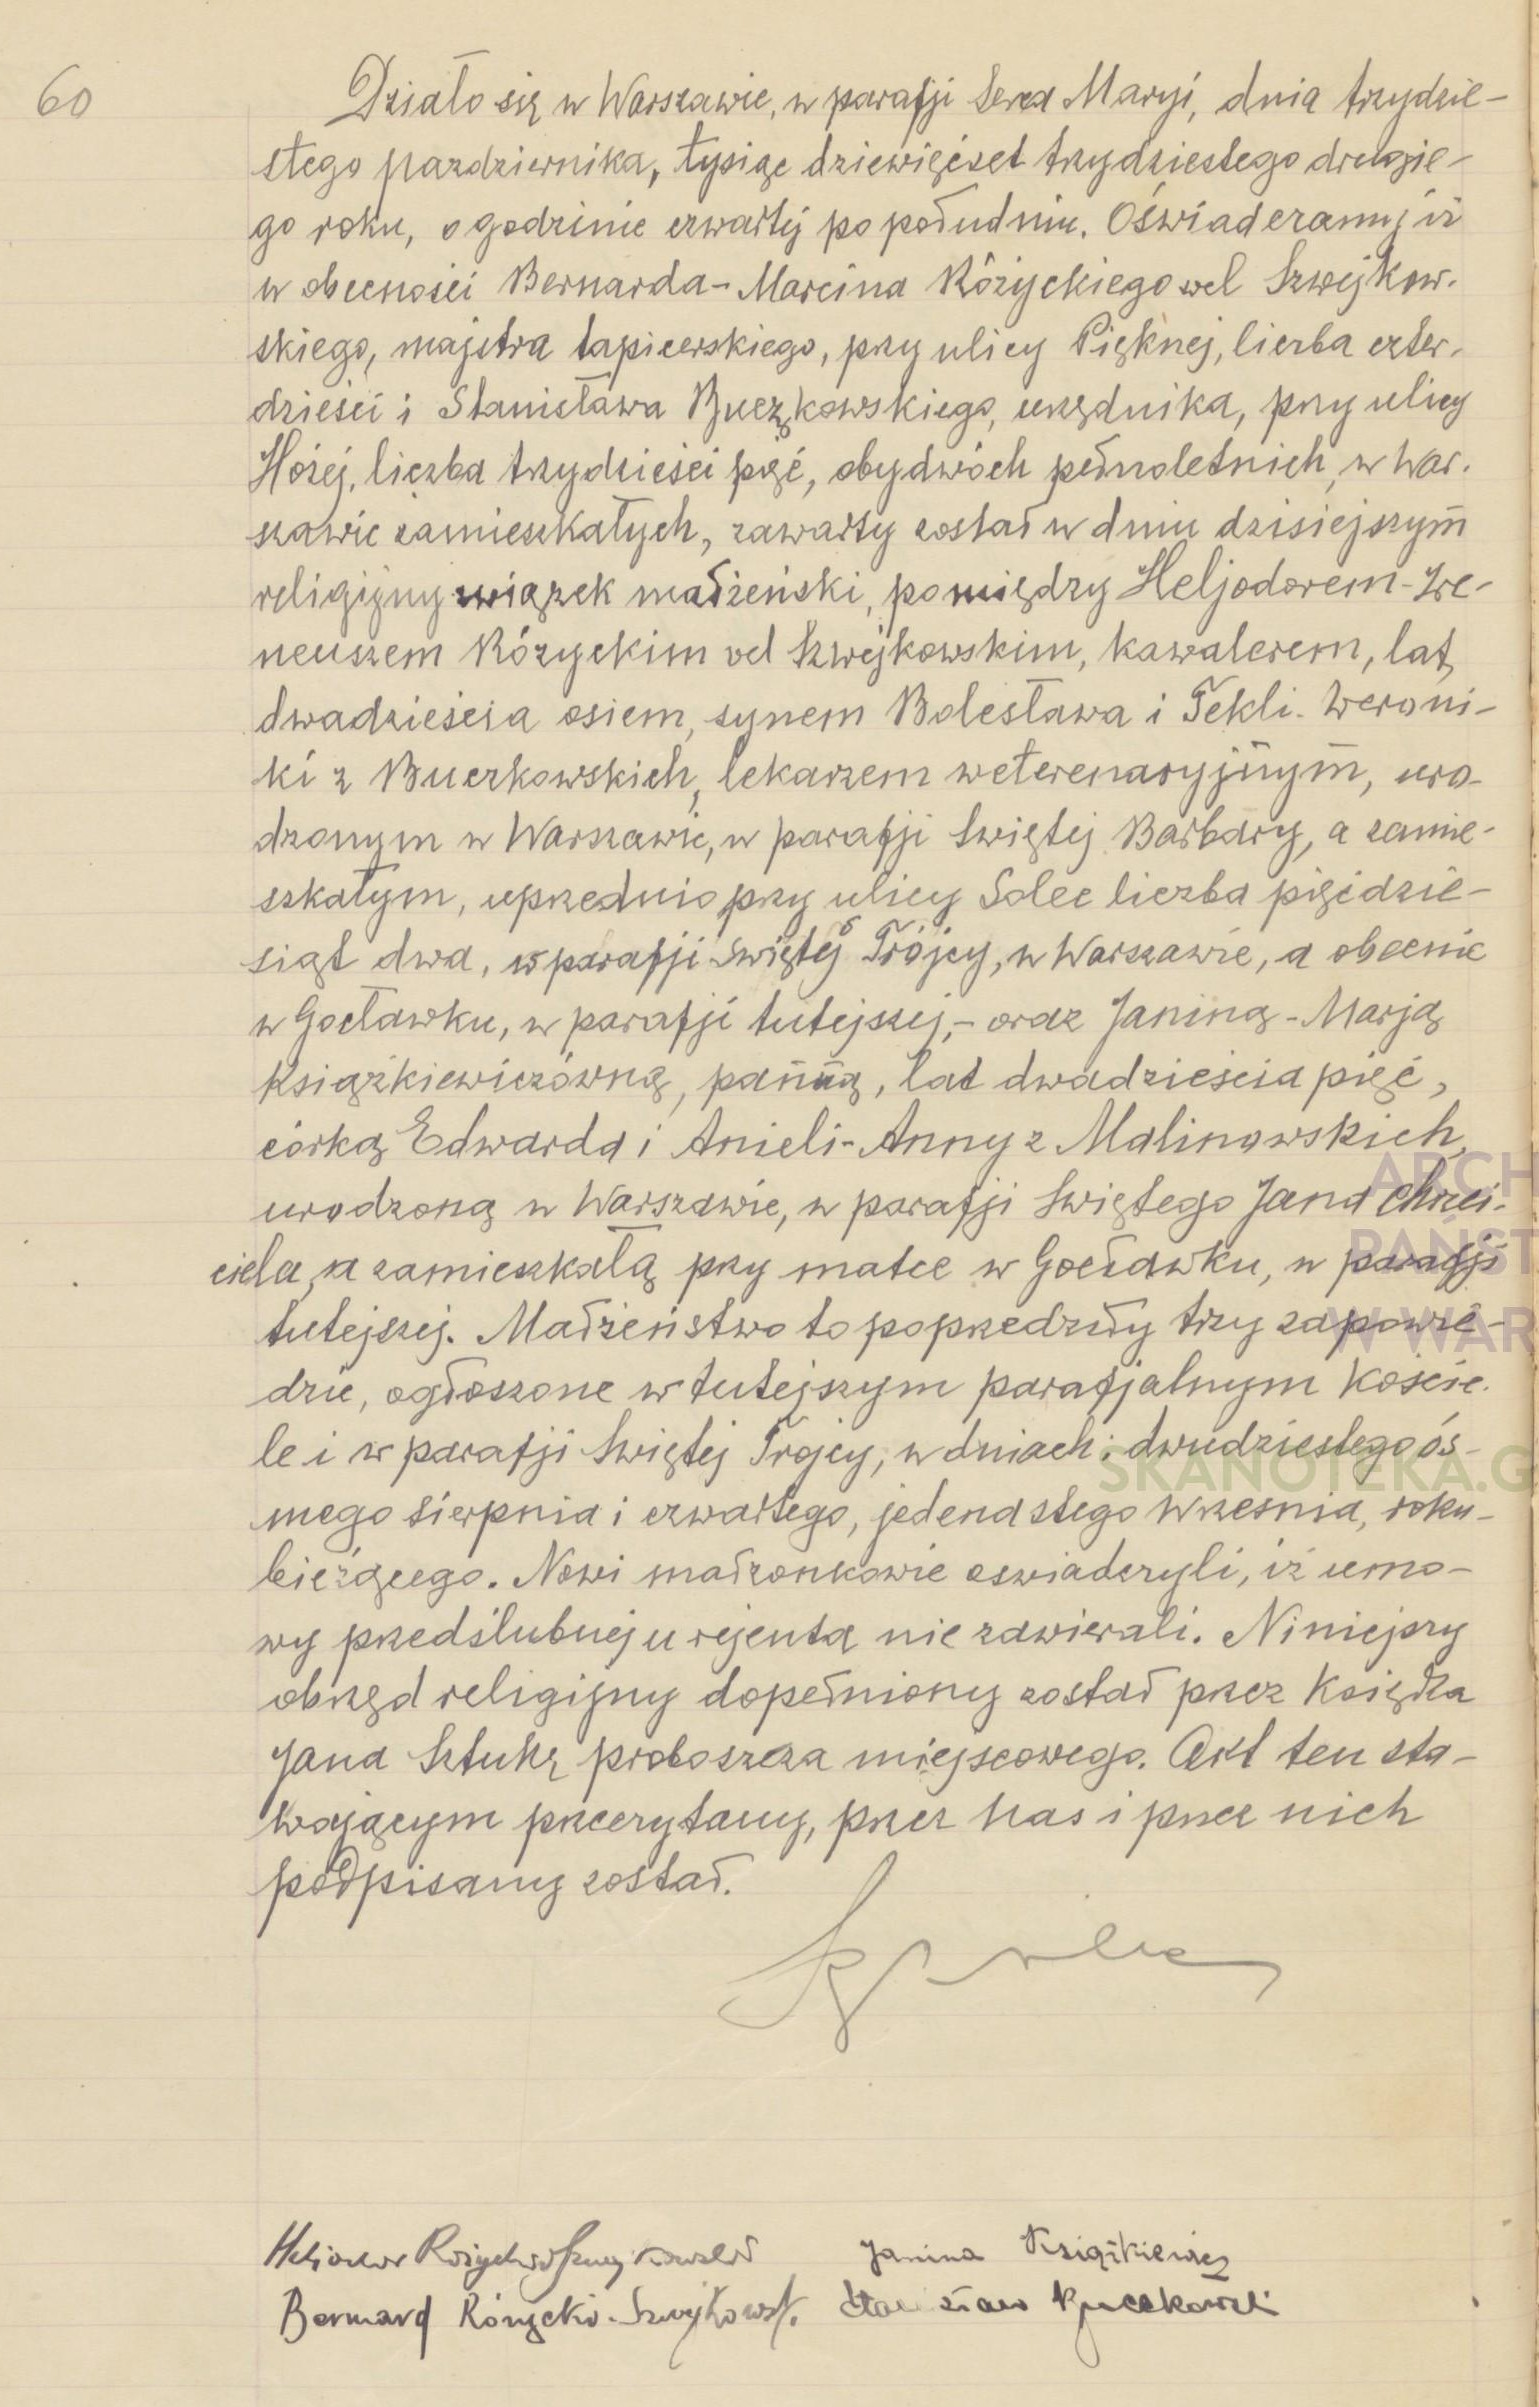 60
Działo się w Warszawie, w parafji Serca Maryi, dnia trzydzie-
stego pazdziernika, tysiąc dziewięćset trzydziestego drugie-
go roku, o godzinie czwartej po południu. Oświadczamy, iż
w obecności Bernarda-Marcina Różyckiego vel Szwejkow-
skiego, majstra tapicerskiego, przy ulicy Pięknej, liczba czter-
dzieści i Stanisława Buczkowskiego, urzędnika, przy ulicy
Hożej, liczba trzydzieści pięć, obydwóch pełnoletnich, w War-
szawie zamieszkałych, zawarty został w dniu dzisiejszym
religijny związek małżeński, pomiędzy Heljodorem-Ire-
neuszem Różyckim vel Szwejkowskim, kawalerem, lat
dwadzieścia osiem, synem Bolesława i Tekli-Weroni-
ki z Buczkowskich, lekarzem weterenaryjnym, uro-
dzonym w Warszawie, w parafji Swiętej Barbary, a zamie-
szkałym, uprzednio przy ulicy Solec liczba pięćdzie-
siąt dwa, w parafji Swiętej Trójcy, w Warszawie, a obecnie
w Gocławku, w parafji tutejszej,- oraz Janiną-Marją
Książkiewiczówną, panną, lat dwadzieścia pięć,
córką Edwarda i Anieli-Anny z Malinowskich,
urodzoną w Warszawie, w parafji Swiętego Jana Chrzci-
ciela, a zamieszkałą przy matce w Gocławku, w parafji
tutejszej. Małżeństwo to poprzedziły trzy zapowie-
dzie, ogłoszone w tutejszym parafjalnym Koście-
le i w parafji Swiętej Trojcy, w dniach: dwudziestego ós-
mego sierpnia i czwartego, jedenastego Wrzesnia, roku
bieżącego. Nowi małżonkowie oswiadczyli, iż umo-
wy przedślubnej u rejenta nie zawierali. Niniejszy
obrzęd religijny dopełniony został przez Księdza
Jana Sztukę proboszcza miejscowego. Akt ten sta-
wającym przeczytany, przez Nas i przez nich
podpisany został.
Heljodor Różycki Szwejkowski Janina Książkiewicz
Bernard Różycki-Szwejkowski. Stanisław Buczkowski
ARCH
PAŃST
W WAR
SKANOTEKA.G